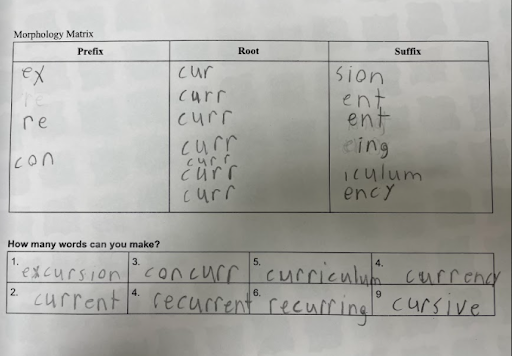 Morphology Matrix
Prefix Root Suffix
ex cur sion
curr ent
re curr ent
curr ing
con curr
curr iculum
curr ency
How many words can you make?
1. excursion 3. concurr 5. curriculum 4. currency
2. current 4. recurrent 6. recurring 9 cursive